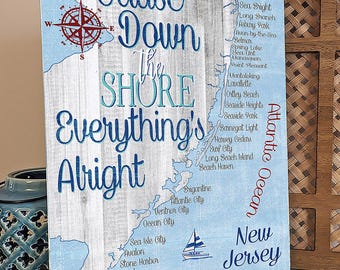 'Cause
Down
the
SHORE
Everything's
Alright
Sea Bright
Long Branch
Asbury Park
Avon-by-the-Sea
Belmar
Spring Lake
Sea Girt
Manasquan
Point Pleasant
Mantoloking
Lavallette
Ortley Beach
Seaside Heights
Seaside Park
Barnegat Light
Harvey Cedars
Surf City
Long Beach Island
Beach Haven
Brigantine
Atlantic City
Ventnor City
Ocean City
Sea Isle City
Avalon
Stone Harbor
Atlantic Ocean
New
Jersey